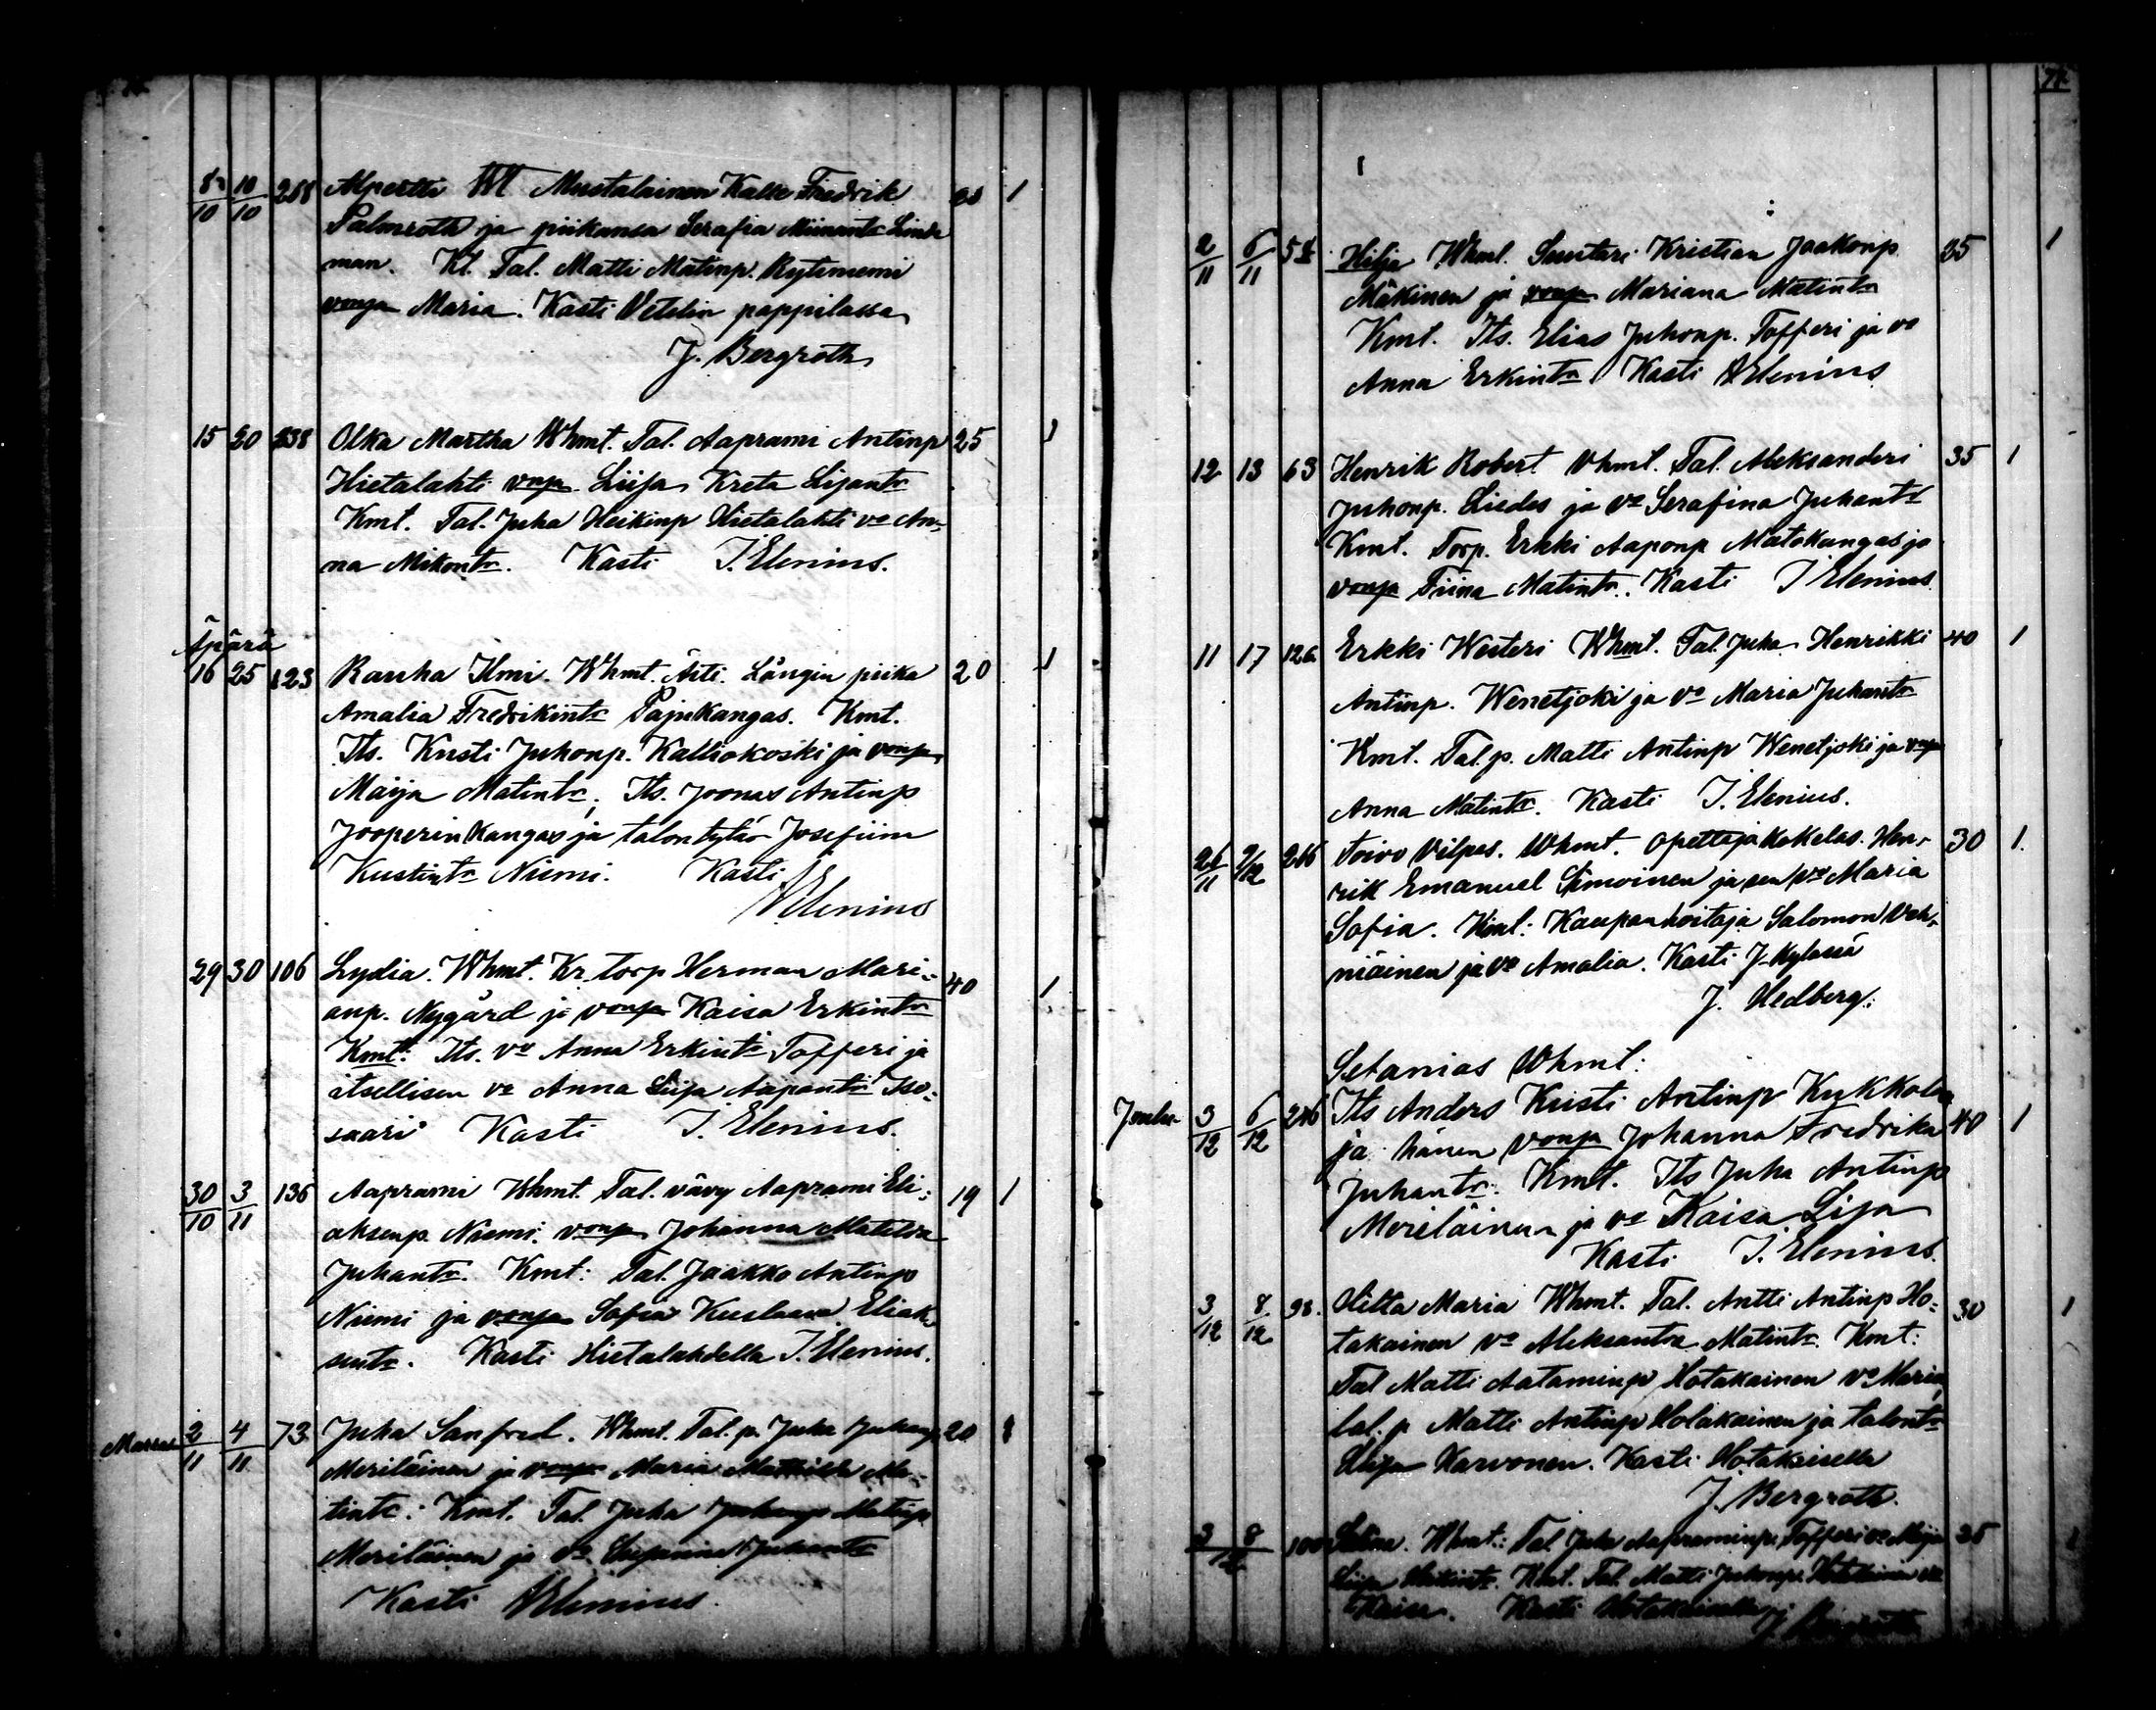 77.
8 10 288 Alpertti Mustalainen Kalle Fredrik 20 1
10 10 Palmroth ja piikansa Serafia Linde
man. Kt. Tal. Matti Matinp. Rytiniemi
vonsa Maria. Kasti Vetelin pappilassa
J. Bergroth
15 20 238 Olka Martha Vhmt. Tal. Aaprami Antinp 25 1
Hietalahti vnsa Liisa Kreta Lisantr
Kmt. Tal. Juha Heikinp Hietalahti vo An-
na Mikontr. Kasti I. Elenius.
Äpärä
16 25 123 Rauha Ilmi. Whmt. Äiti. Långin piika 20 1
Amalia Fredrikintr Pajukangas. Kmt.
Its. Kusti Juhonp. Kalliokoski ja vonsa
Maija Matintr, Its. Joonas Antinp
Jooperinkangas ja talontytär Josefiina
Kustintr Niemi. Kasti
I Elenius
29 30 106 Lydia. Whmt. Kr. torp Herman Mari- 40 1
anp. Nygård ja vonsa Kaisa Erkintr
Kmt: Its. vo Anna Erkintr Tofferi ja
itsellisen vo Anna Liisa Aapontr Iso-
saari Kasti I. Elenius.
30 3 136 Aaprami Whmt. Tal. vävy Aaprami Eli- 19 1
10 11 aksenp. Niemi. vonsa Johanna Matilda
Juhantr. Kmt: Tal. Jaakko Antinp
Niemi ja vonsa Sofia Kustaava Eliak-
sentr. Kasti Hietalahdella I. Elenius.
Marras 2 4 73 Juha Sanfred. Whmt. Tal. p. Juha Juhanp 20 1
11 11 Meriläinen ja vonsa Maria Mathilda Ma-
tintr: Kmt. Tal. Juha Matinp
Meriläinen ja vo Susanna Juhantr
Kasti I Elenius.
2 6 54 Hilja Whmt. Suntari Kristian Jaakonp 35 1
11 11 Mäkinen ja vonsa Mariana Matintr
Kmt. Its. Elias Juhonp. Tofferi ja vo
Anna Erkintr Kasti I Elenius
12 13 63 Henrik Robert Vhmt. Tal. Aleksanderi 35 1
Juhonp. Liedes ja vo Serafina Juhantr
Kmt. Torp. Erkki Aaponp Matokangas ja
vonsa Fiina Matintr. Kasti I Elenius
11 17 126 Erkki Westeri Whmt. Tal. Juha Henrikki 40 1
Antinp. Wenetjoki ja vo Maria Juhantr
Kmt. Tal. p. Matti Antinp Wenetjoki ja vnsa
Anna Matintr. Kasti I. Elenius.
26 2/12 216 Toivo Vilpas. Whmt. opettaja kokelas. Hen- 30 1.
11 rik Emanuel Simoinen ja sen vo Maria
Sofia. Kmt: Kaupanhoitaja Salomon Veh-
miäinen ja vo Amalia. Kasti J-kylässä
J. Hedberg.
Setanias Whmt:
Joulu 3 6 246 Its Anders Kusti Antinp Kykkola
12 12 ja hänen vonsa Johanna Fredrika 40 1
Juhantr. Kmt. Its Juha Antinp
Meriläinen ja vo Kaisa Lisa
Kasti I. Elenius.
3 8 98. Hilta Maria Whmt. Tal. Antti Antinp Ho- 30 1
12 12 takainen vo Aleksantra Matintr. Kmt:
Tal Matti Aataminp Hotakainen vo Maria,
tal. p Matti Antinp Hotakainen ja talontr
Karvonen. Kasti Hotakaisella
J. Bergroth.
3 8 100 Whmt: Tal Juha Aapraminp. Tofferi vo Maija 35
12 Liisa Kmt. Tal. Matti Juhonp. Hotakainen vo
Kaisa. Kasti Hotakaisella
J. Bergroth